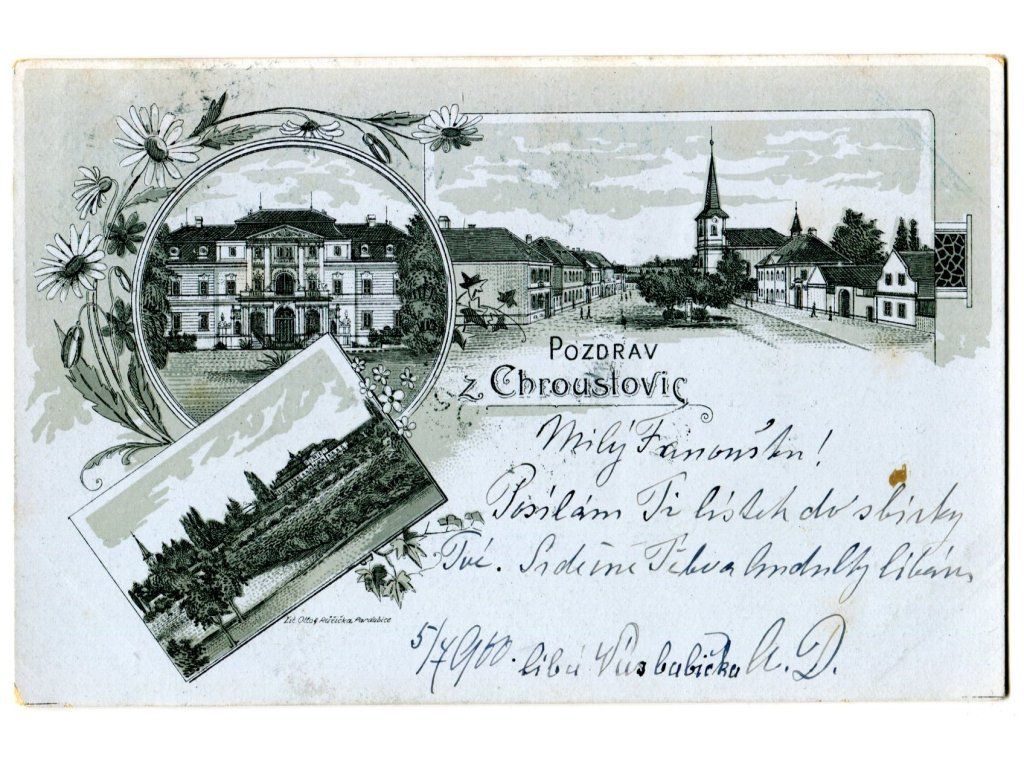 POZDRAV
z Chroustovic
Milý Fanoušku!
Posílám Ti lístek do sbírky
Tvé. Srdečně Tebe a líbám
5/7 900. líbá Vás babička A. D.
Lit. Otto Růžička, Pardubice